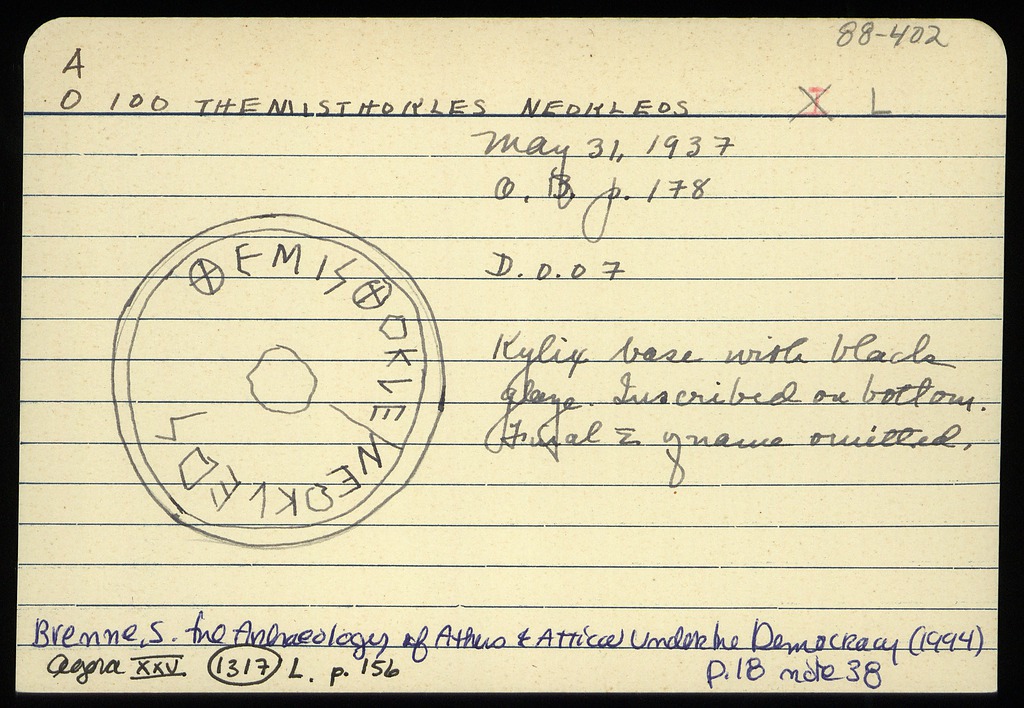 88-402
A
O 100 THEMISTHOKLES NEOKLEOS X I L
May 31, 1937
O. B. p. 178
D. 0.07
ⴲEMISⴲOKLE
NEOKLEOS
Kylix base with black
glaze. Inscribed on bottom.
Final Σ of name omitted.
Brenne, S. The Archaeology of Athens & Attica Under the Democracy (1994)
p.18 note 38
Agora XXV 1317 L. p. 156